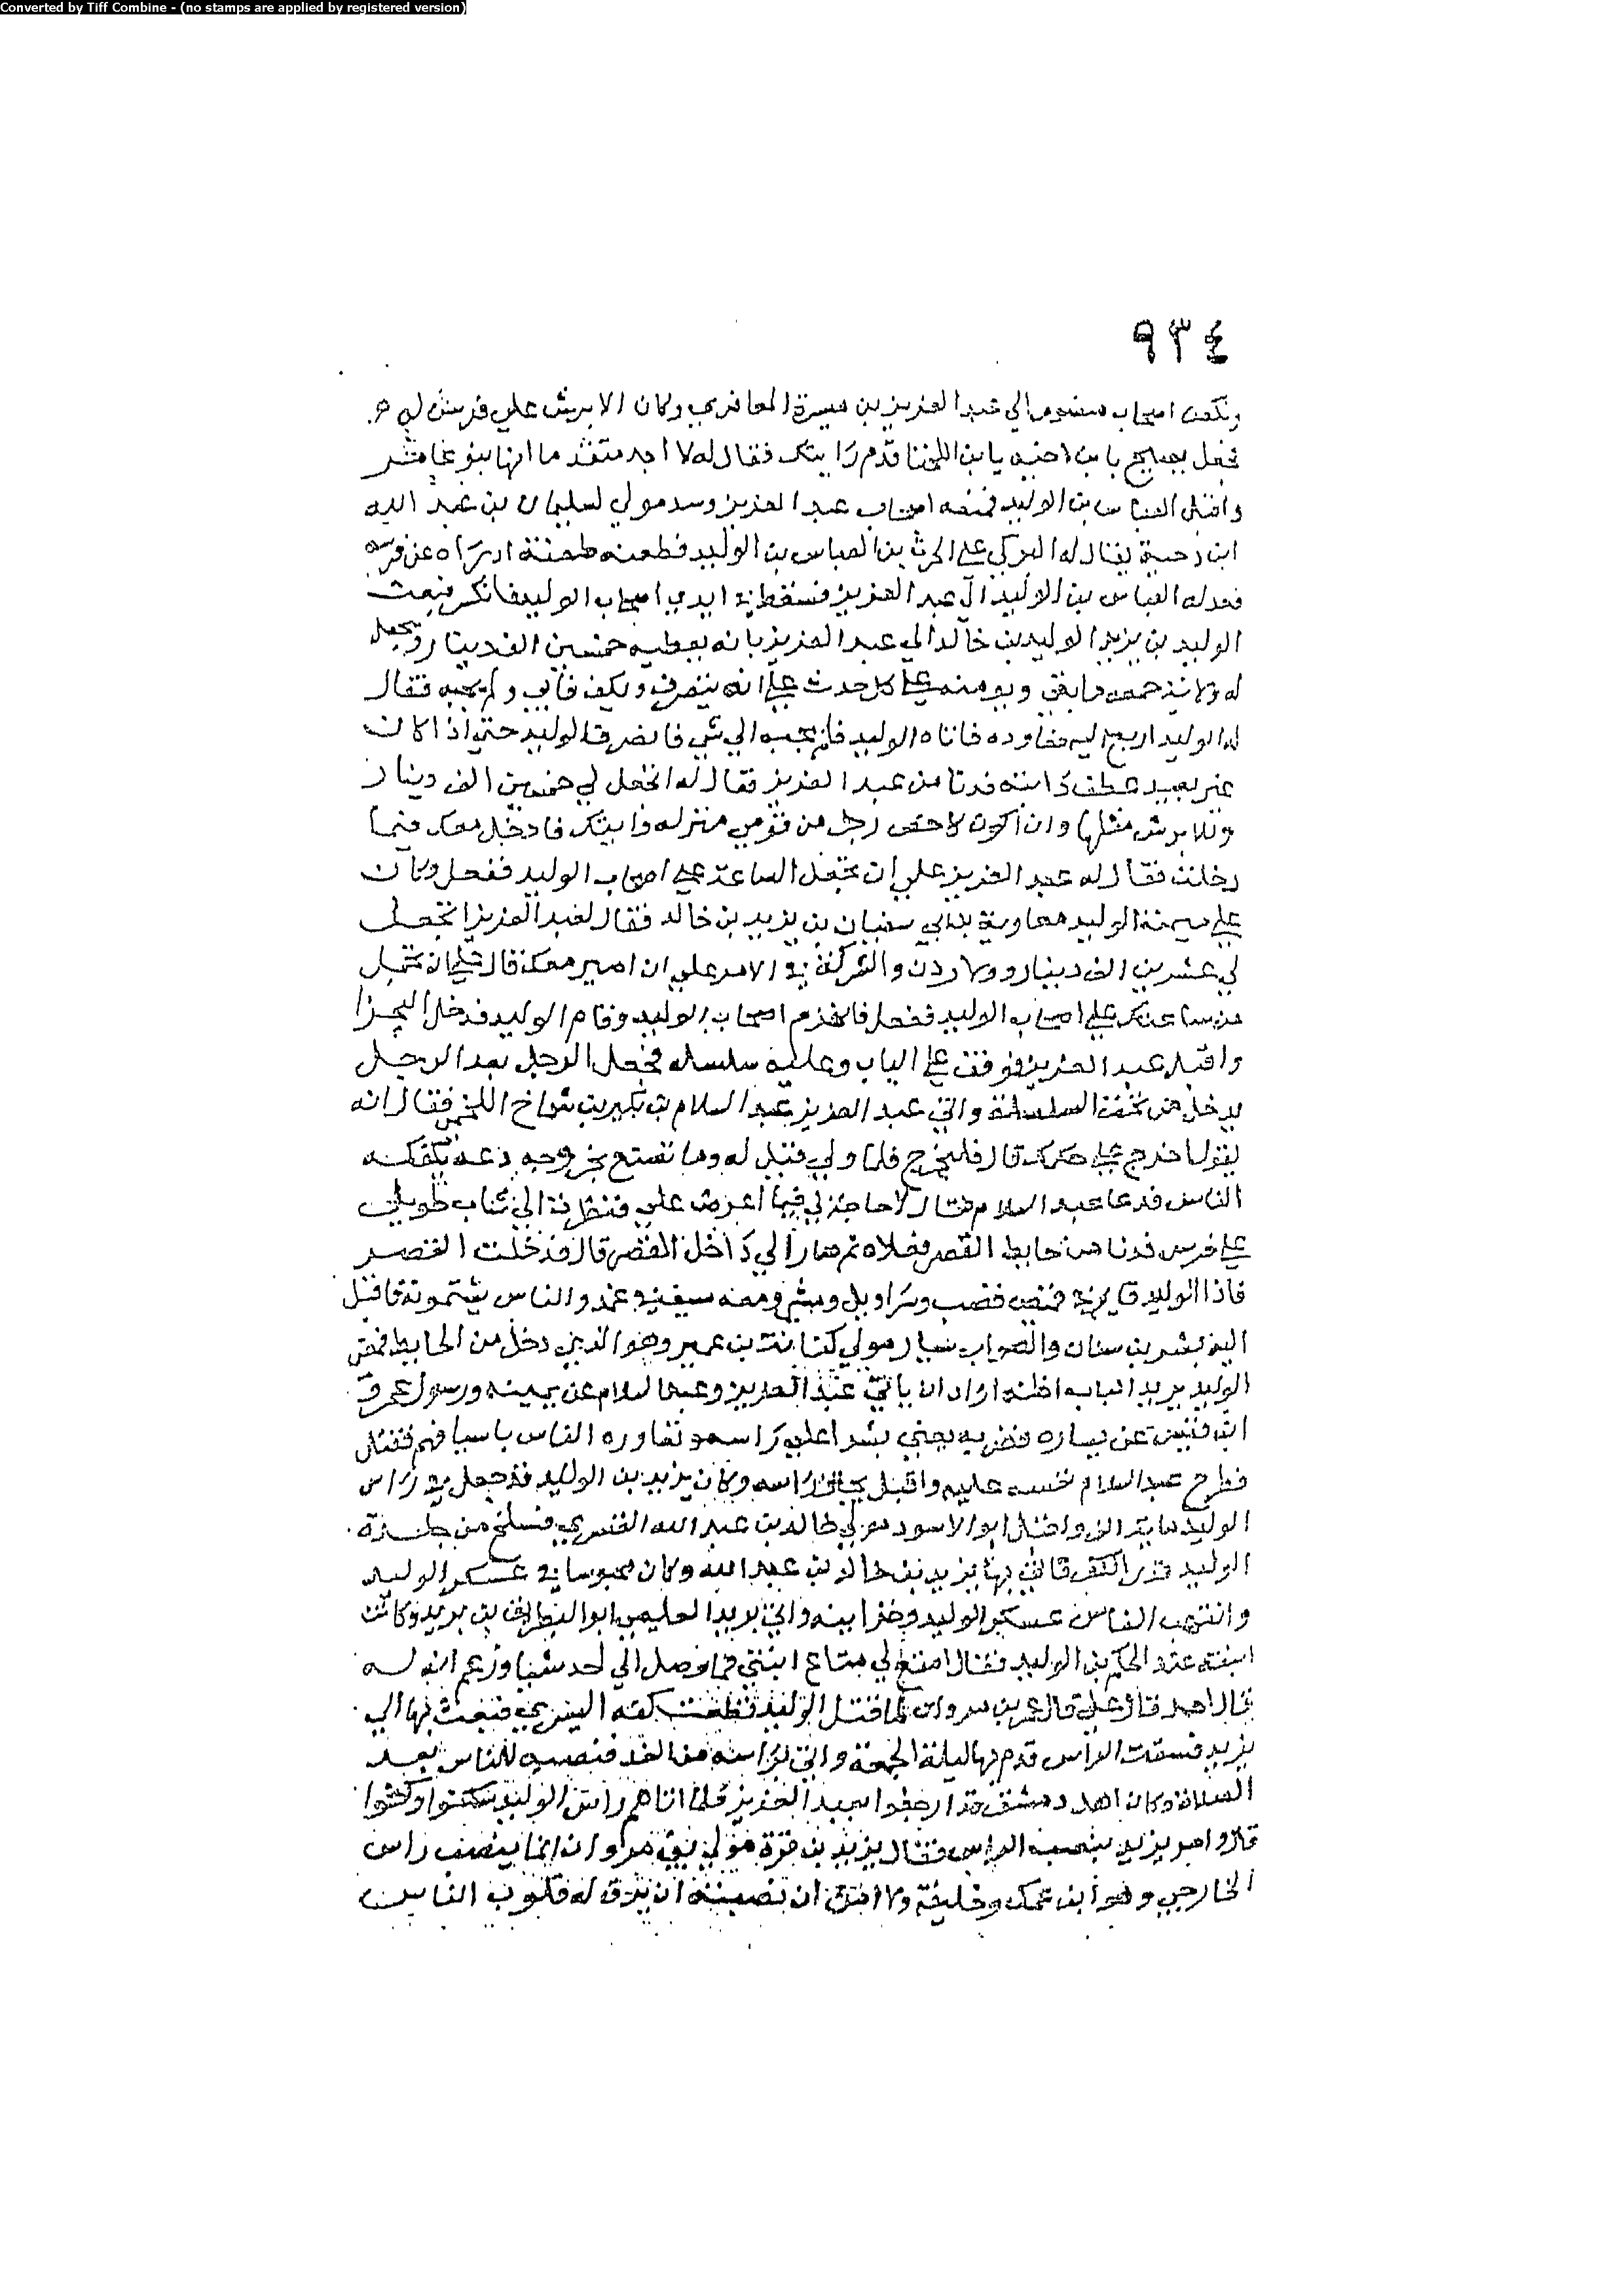 Converted by Tiff Combine - (no stamps are applied by registered version)
٩٣٤
اصحاب منصور الي عبد العزيز بن ميسرة المعافري وكان الابرش علي فرس له
فجعل يصيح بابن اخيه يابن اللخنا قدم رايتك فقال له لا اجد متقدما انها بنو عامر
واقبل العباس بن الوليد فمنعه اصحاب عبد العزيز وسد مولي لسليمان بن عبد الله
ابن دحية يقال له التركي علي الحرث بن العباس بن الوليد فطعنه طعنة ادراه عن فرسه
فعدل العباس بن الوليد الي عبد العزيز فسقط في ايدي اصحاب الوليد فانكسر فبعث
الوليد بن يزيد الوليد بن خالد الي عبد العزيز بانه يعطيه خمسين الف دينار ويجعل
له ولاية حمص ما بقي ويومنه علي كل حدث علي انه ينصرف ويكف فابي ولم يجبه فقال
له الوليد ارجع اليه فعاوده فاتاه الوليد فلم يجبه الي شي فانصرف الوليد حتي اذا كان
غير بعيد عطف دابته فدنا من عبد العزيز فقال له اتجعل لي خمسين الف دينار
وللابرش مثلها وان اكون لاخص رجل من قومي منزله وابيتك فادخل معك فيما
دخلت فقال له عبد العزيز علي ان تحمل الساعة علي اصحاب الوليد ففعل وكان
علي ميمنة الوليد معاوية بن ابي سفيان بن يزيد بن خالد فقال لعبد العزيز اتجعل
لي عشرين الف دينار وولاردن والشركة في الامر علي ان اصير معك قال علي ان تحمل
من ساعتك علي اصحاب الوليد ففعل فانهزم اصحاب الوليد وقام الوليد فدخل البخرا
واقبل عبد العزيز فوقف علي الباب وعليه سلسله فجعل الرجل بعد الرجل
يدخل من تحت السلسلة واتي عبد العزيز عبد السلام بن بكير بن شماخ اللخمي فقال انه
يقول اخرج علي حكمك قال فليخرج فلما ولي قيل له وما تصنع بخروجه دعه يكفيكه
الناس فدعا عبد السلام فقال لا حاجة لي فيما اعرض علي فنظرت الي شاب طويل
علي فرس فدنا من حايط القصر فعلاه ثم صار الي داخل القصر قال فدخلت القصر
فاذا الوليد قايم في قميص قصب وسراويل وشي ومعه سيف في غمد والناس يشتمونه فاقبل
اليه بشر بن سنان والصواب شيبان مولي كنانة بن عمير وهو الذي دخل من الحايط فمضي
الوليد يريد الباب اظنه اراد ان ياتي عبد العزيز وعبد السلام عن يمينه ورسول عمرو
ابن قيس عن يساره فضربه يعني بشرا علي راسه وتعاوره الناس باسيافهم فقتل
فطرح عبد السلام نفسه عليه واقبل يحتز راسه وكان يزيد بن الوليد قد جعل في راس
الوليد ماية الف واقبل ابو الاسود مولي خالد بن عبد الله القسري فسلخ من جلدة
الوليد قدر الكف فاتي بها يزيد بن خالد بن عبد الله وكان محبوسا في عسكر الوليد
وانتهب الناس عسكر الوليد وخزاينه واتي يزيد العليمي ابو البطريق بن يزيد وكانت
ابنته عند الحكم بن الوليد فقال امنع لي متاع ابنتي فما وصل الي احد شيا وزعم انه له
قال احمد قال علي قال عمر بن مروان لما قتل الوليد قطعت كفه اليسري فبعث بها الي
يزيد فسبقت الراس قدم بها ليلة الجمعة واتي براسه من الغد فنصبه للناس بعد
الصلاة وكان اهل دمشق قد ارجفوا بعبد العزيز فلما اتاهم راس الوليد سكتوا وكفوا
قال وامر يزيد بنصب الراس فقال يزيد بن فروة مولي بني مروان انما ينصب راس
الخارجي وهو ابن عمك وخليفة ولا امن ان نصبته ان يرق له قلوب الناس